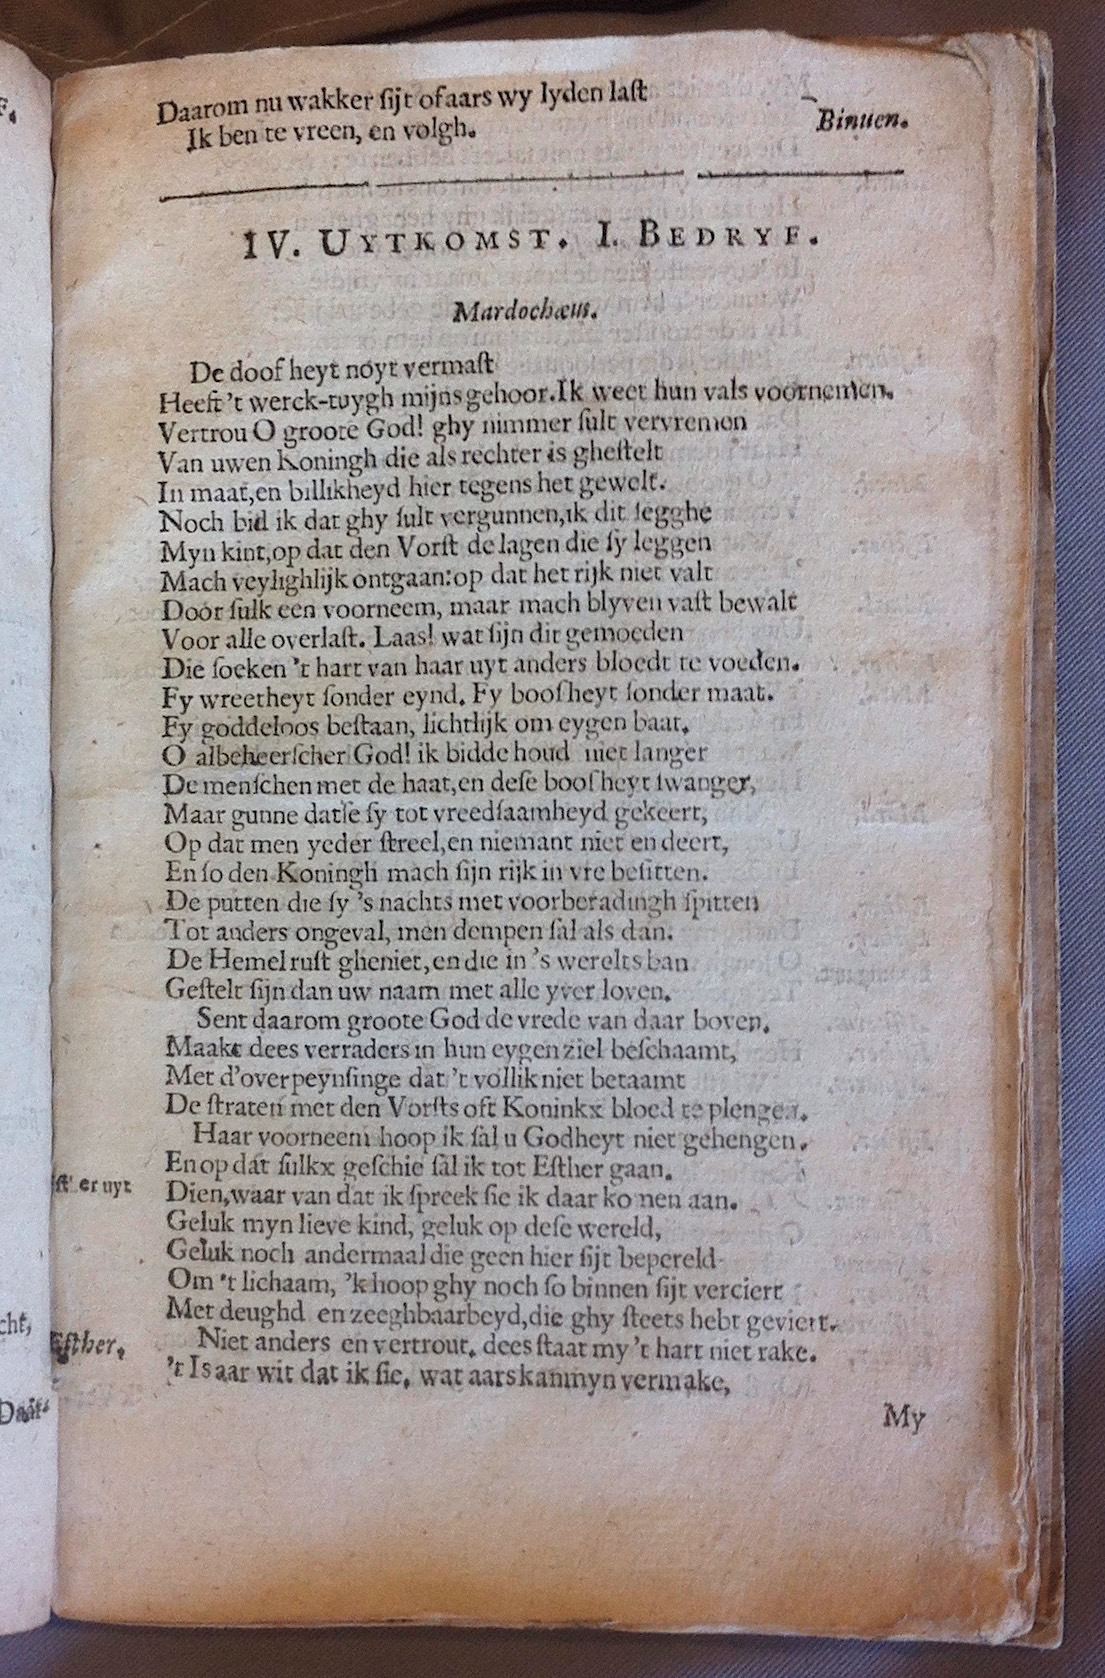 Daarom nu wakker sijt of aars wy lyden last
Ik ben te vreen, en volgh.
Binnen.
IV. UYTKOMST. I. BEDRYF.
Mardochæus.
De doof heyt noyt vermast
Heeft 't werck-tuygh mijns gehoor. Ik weet hun vals voornemen.
Vertrou O groote God! ghy nimmer sult vervremen
Van uwen Koningh die als rechter is ghestelt
In maat, en billikheyd hier tegens het gewelt.
Noch bid ik dat ghy sult vergunnen, ik dit segghe
Myn kint, op dat den Vorst de lagen die sy leggen
Mach veylighlijk ontgaan: op dat het rijk niet valt
Door sulk een voorneem, maar mach blyven vast bewalt
Voor alle overlast. Laas! wat sijn dit gemoeden
Die soeken 't hart van haar uyt anders bloedt te voeden.
Fy wreetheyt sonder eynd. Fy boosheyt sonder maat.
Fy goddeloos bestaan, lichtlijk om eygen baat.
O albeheerscher God! ik bidde houd niet langer
De menschen met de haat, en dese boosheyt swanger,
Maar gunne datse sy tot vreedsaamheyd gekeert,
Op dat men yeder streel, en niemant niet en deert,
En so den Koningh mach sijn rijk in vre besitten.
De putten die sy 's nachts met voorberadingh spitten
Tot anders ongeval, men dempen sal als dan.
De Hemel rust gheniet, en die in 's werelts ban
Gestelt sijn dan uw naam met alle yver loven.
Sent daarom groote God de vrede van daar boven,
Maakt dees verraders in hun eygen ziel beschaamt,
Met d'overpeynsinge dat 't vollik niet betaamt
De straten met den Vorsts oft Koninkx bloed te plengen.
Haar voorneem hoop ik sal u Godheyt niet gehengen.
En op dat sulkx geschie sal ik tot Esther gaan.
Dien, waar van dat ik spreek sie ik daar komen aan.
Geluk myn lieve kind, geluk op dese wereld,
Geluk noch andermaal die geen hier sijt bepereld
Om 't lichaam, 'k hoop ghy noch so binnen sijt verciert
Met deughd en zeeghbaarheyd, die ghy steets hebt geviert.
Niet anders en vertrout. dees staat my 't hart niet rake.
't Is aar wit dat ik sie, wat aars kan myn vermake,
My
F.
er uyt
cht,
Esther.
Daar-